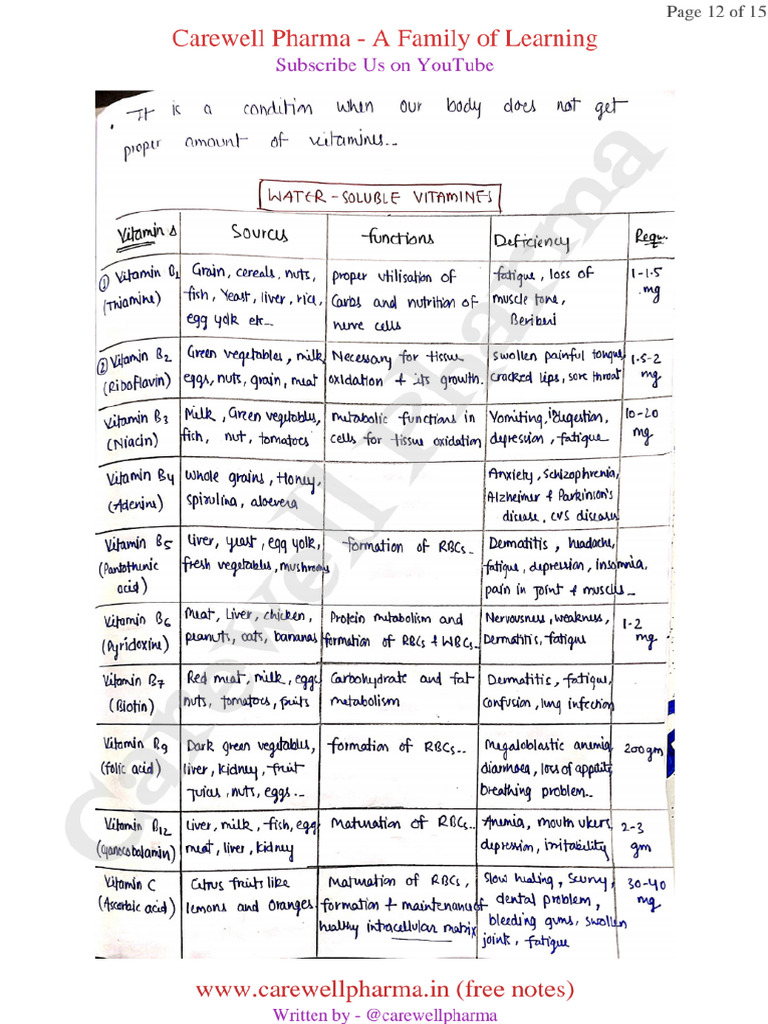 Page 12 of 15
Carewell Pharma - A Family of Learning
Subscribe Us on YouTube
It is a condition when our body does not get
proper amount of vitamines..
WATER-SOLUBLE VITAMINES
Vitamins Sources functions Deficiency Requ.
① Vitamin B1 (Thiamine)
Grain, cereals, nuts,
fish, Yeast, liver, rice,
egg yolk etc..
proper utilisation of
Carbs and nutrition of
nerve cells
fatigue, loss of
muscle tone,
Beriberi
1-1.5
mg
② Vitamin B2
(Riboflavin)
Green vegetables, milk
eggs, nuts, grain, meat
Necessary for tissue
oxidation + its growth.
swollen painful tongue,
cracked lips, sore throat
1.5-2
mg
Vitamin B3
(Niacin)
Milk, Green vegetables,
fish, nut, tomatoes
metabolic functions in
cells for tissue oxidation
Vomiting, digestion,
depression, fatigue
10-20
mg
Vitamin B4
(Adenine)
Whole grains, Honey,
spirulina, aloevera
Anxiety, Schizophrenia,
Alzheimer & Parkinson's
disease, CVS diseases
Vitamin B5
(Pantothinic
acid)
Liver, yeast, egg yolk,
fresh vegetables, mushrooms
formation of RBCs..
Dermatitis, headache,
fatigue, depression, insomnia,
pain in Joint & muscles..
Vitamin B6
(Pyridoxine)
Meat, Liver, chicken,
peanuts, oats, bananas
Protein metabolism and
formation of RBCs & WBCs..
Nervousness, weakness,
Dermatitis, fatigue
1-2
mg
Vitamin B7
(Biotin)
Red meat, milk, eggs
nuts, tomatoes, fruits
Carbohydrate and fat
metabolism
Dermatitis, fatigue,
confusion, lung infection
Vitamin B9
(folic acid)
Dark green vegetables,
liver, kidney, fruit
Juices, nuts, eggs..
formation of RBCs..
Megaloblastic anemia
diarrhoea, loss of appetite,
breathing problem..
200gm
Vitamin B12
(Cyanocobalamin)
liver, milk, fish, egg
meat, liver, kidney
Maturation of RBCs..
Anemia, mouth ulcers
depression, irritability
2-3
gm
Vitamin C
(Ascorbic acid)
Citrus fruits like
lemons and oranges
Maturation of RBCs,
formation + maintenance of
healthy intracellular matrix
Slow healing, scurvy,
dental problem,
bleeding gums, swollen
joint, fatigue
30-40
mg
Carewell Pharma
www.carewellpharma.in (free notes)
Written by - @carewellpharma